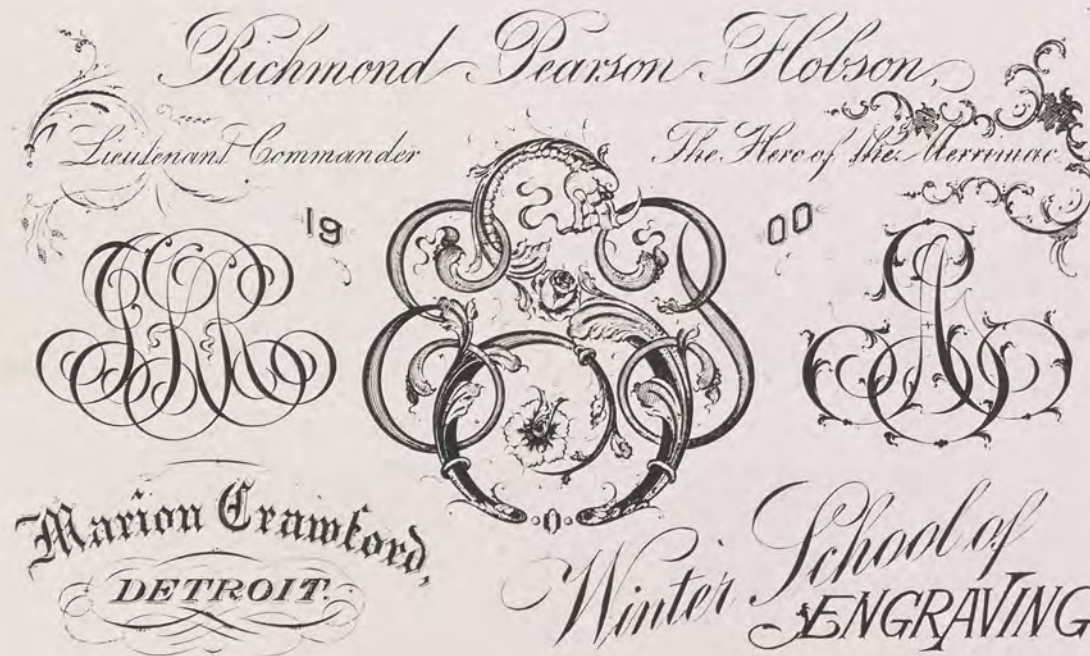 Richmond Pearson Hobson,
Lieutenant Commander
The Hero of the Merrimac
19 00
Marion Crawford,
DETROIT.
Winter School of
ENGRAVING